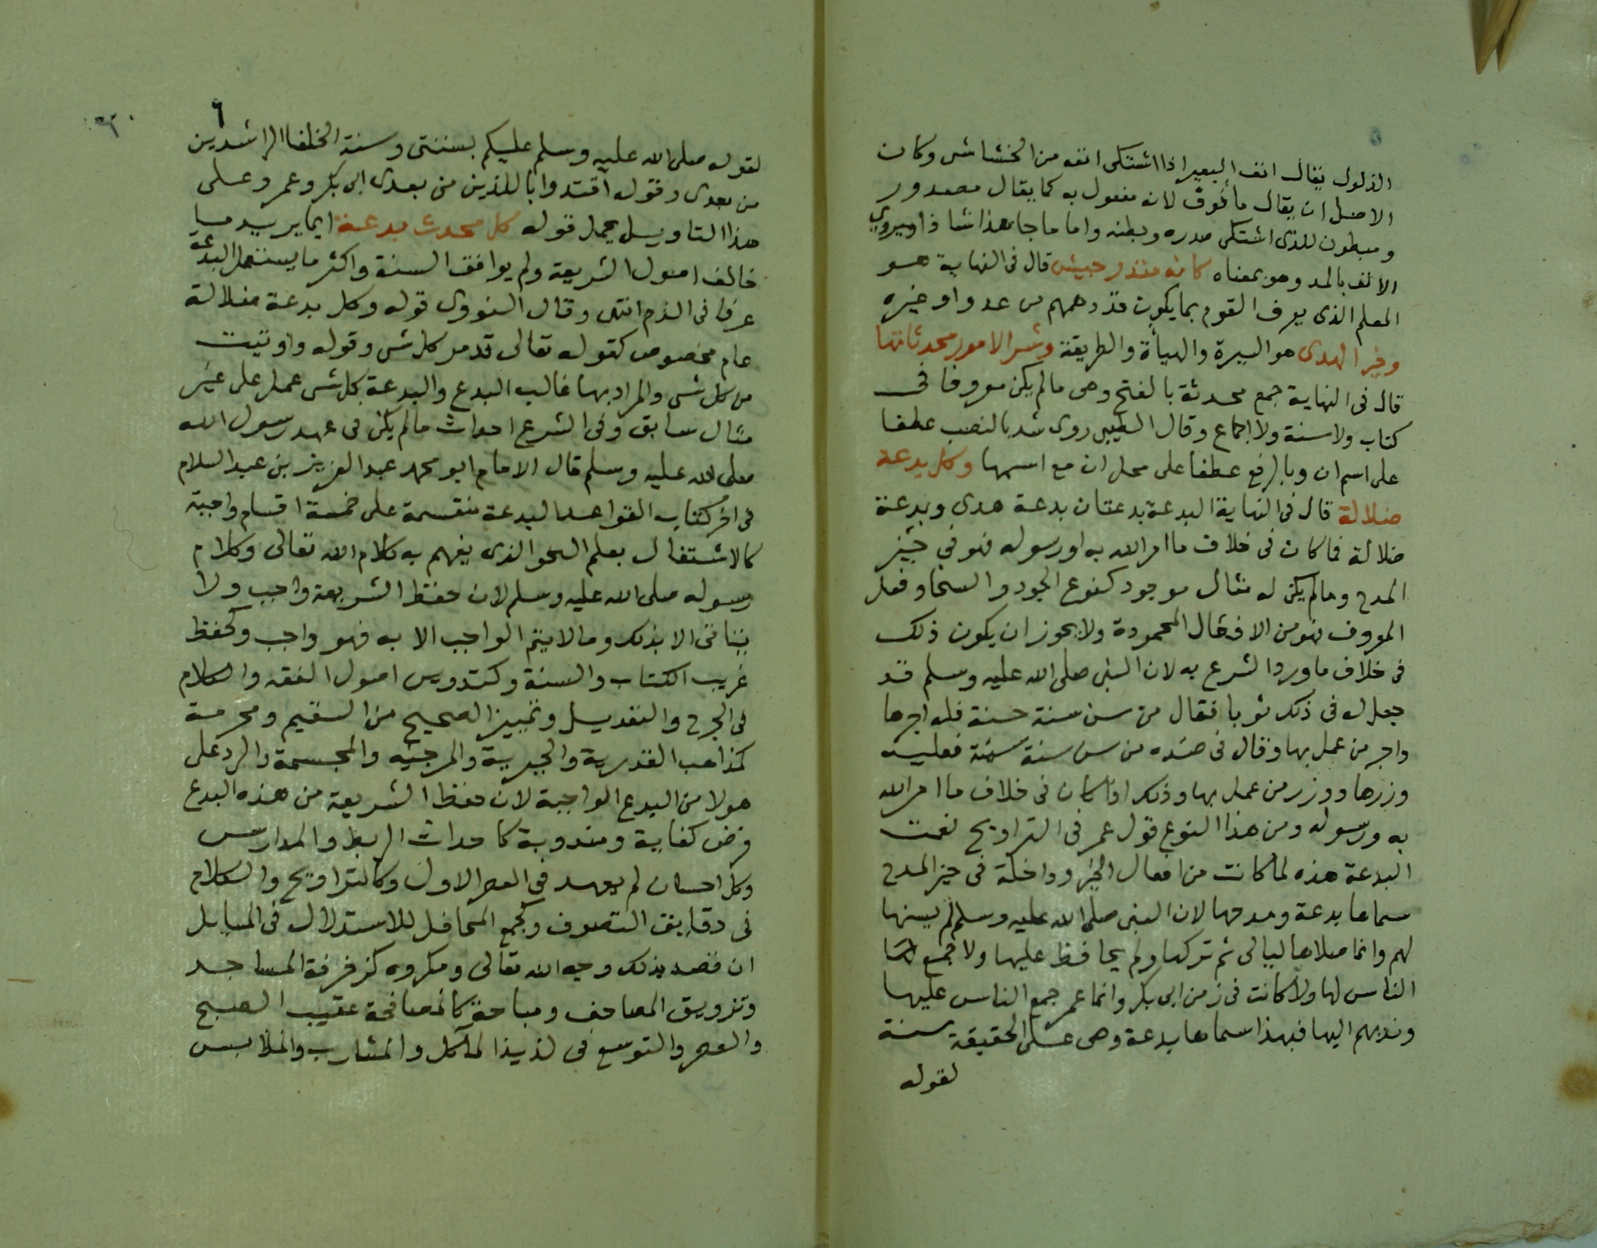 الذلول يقال انف البعير اذا اشتكى انفه من الخشاش وكان
الاصل ان يقال مأنوف لانه مفعول به كما يقال مصدور
ومبطون للذى اشتكى صدره وبطنه واما ما جا هذا شاذا ويروي
الالف بالمد وهو بمعناه كانه منذر جيش قال فى النهاية هو
المعلم الذى يعرف القوم بما يكون قد دهمهم من عدو او غيره
وخير الهدى هو السيرة والهيأة والطريقة وشر الامور محدثاتها
قال فى النهاية جمع محدثة بالفتح وهى ما لم يكن معروفا فى
كتاب ولا سنة ولا اجماع وقال الطيبى روى شر بالنصب عطفا
على اسم ان وبالرفع عطفا على محل ان مع اسمها وكل بدعة
ضلالة قال فى النهاية البدعة بدعتان بدعة هدى وبدعة
ضلالة فما كان فى خلاف ما امر الله به او رسوله فهو فى حيز
المدح وما لم يكن له مثال موجود كنوع الجود والسخا وفعل
المعروف فهو من الافعال المحمودة ولا يجوز ان يكون ذلك
فى خلاف ما ورد الشرع به لان النبى صلى الله عليه وسلم قد
جعل له فى ذلك ثوبا فقال من سن سنة حسنة فله اجرها
واجر من عمل بها وقال فى ضده من سن سنة سيئة فعليه
وزرها ووزر من عمل بها وذلك اذا كان فى خلاف ما امر الله
به ورسوله ومن هذا النوع قول عمر فى التراويح نعمت
البدعة هذه لما كانت من افعال الخير وداخلة فى حيز المدح
سماها بدعة ومدحها لان النبى صلى الله عليه وسلم لم يسنها
لهم وانما صلاها ليالى ثم تركها ولم يحافظ عليها ولا جمع
الناس لها ولا كانت فى زمن ابى بكر وانما عمر جمع الناس عليها
وندبهم اليها فبهذا سماها بدعة وهى على الحقيقة سنة
لقوله
٦
لقوله صلى الله عليه وسلم عليكم بسنتى وسنة الخلفا الراشدين
من بعدى وقوله اقتدوا باللذين من بعدى ابى بكر وعمر وعلى
هذا التاويل يحمل قوله كل محدث بدعة انما يريد ما
خالف اصول الشريعة ولم يوافق السنة واكثر ما يستعمل البدعة
عرفا فى الذم انتهى وقال النووى قوله وكل بدعة ضلالة
عام مخصوص كقوله تعالى تدمر كل شى وقوله واوتيت
من كل شى والمراد بها غالب البدع والبدعة كل شى عمل على غير
مثال سابق وفى الشرع احداث ما لم يكن فى عهد رسول الله
صلى الله عليه وسلم قال الامام ابو محمد عبد العزيز بن عبد السلام
فى اخر كتاب القواعد البدعة منقسمة على خمسة اقسام واجبة
كالاشتغال بعلم النحو الذى يفهم به كلام الله تعالى وكلام
رسوله صلى الله عليه وسلم لان حفظ الشريعة واجب ولا
يتاتى الا بذلك وما لا يتم الواجب الا به فهو واجب وكحفظ
غريب الكتاب والسنة وكتدوين اصول الفقه والكلام
فى الجرح والتعديل وتمييز الصحيح من السقيم ومحرمة
كمذاهب القدرية والجبرية والمرجئه والمجسمة والرد على
هولا من البدع الواجبة لان حفظ الشريعة من هذه البدع
فرض كفاية ومندوبة كاحداث الربط والمدارس
وكل احسان لم يعهد فى العصر الاول وكالتراويح والكلام
فى دقايق التصوف وكجمع المحافل للاستدلال فى المسايل
ان قصد بذلك وجه الله تعالى ومكروه كزخرفة المساجد
وتزويق المصاحف ومباحة كالمصافحة عقيب الصبح
والعصر والتوسع فى لذيذ المآكل والمشارب والملابس